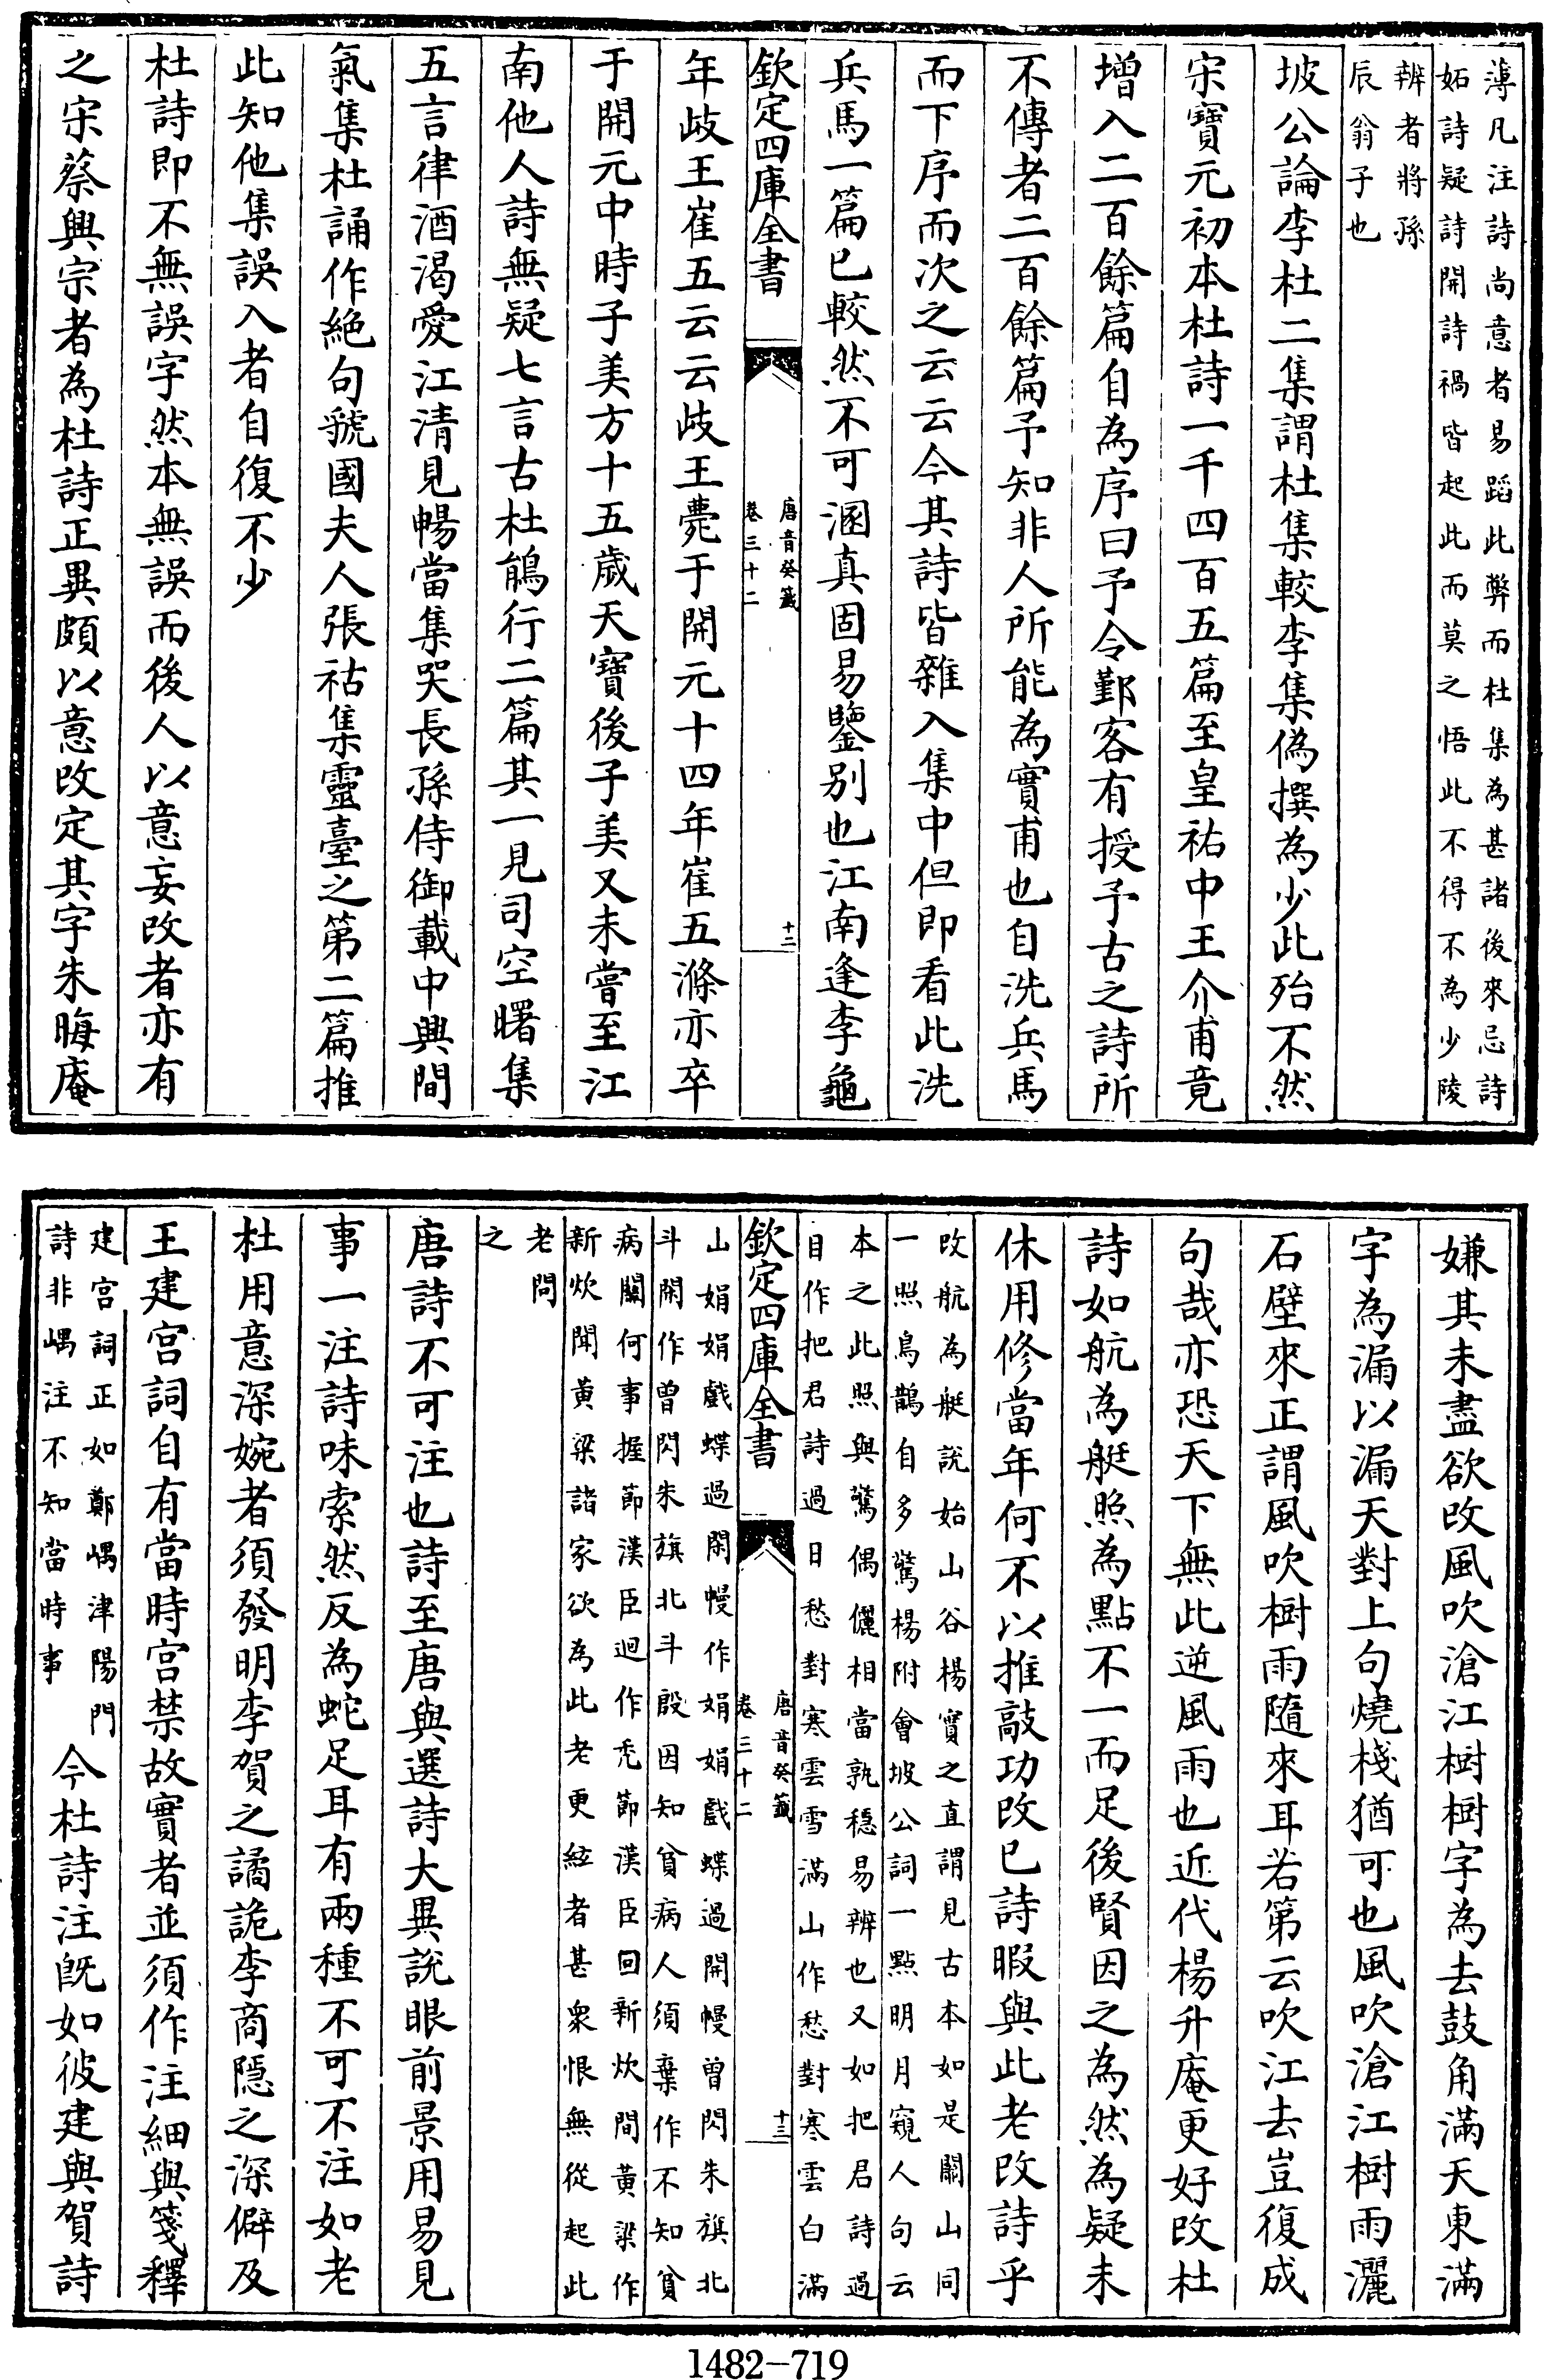 薄凡注詩尚意者易蹈此弊而杜集為甚諸後來忌詩
妬詩疑詩開詩禍皆起此而莫之悟此不得不為少陵
辨者將孫
辰翁子也
坡公論李杜二集謂杜集較李集偽撰為少此殆不然
宋寶元初本杜詩一千四百五篇至皇祐中王介甫竟
增入二百餘篇自為序曰予令鄞客有授予古之詩所
不傳者二百餘篇予知非人所能為實甫也自洗兵馬
而下序而次之云云今其詩皆雜入集中但即看此洗
兵馬一篇已較然不可溷真固易鑒别也江南逢李龜
欽定四庫全書
唐音癸籖
卷三十二
十二
年歧王崔五云云歧王薨于開元十四年崔五滌亦卒
于開元中時子美方十五歲天寶後子美又未嘗至江
南他人詩無疑七言古杜鵑行二篇其一見司空曙集
五言律酒渴愛江清見暢當集哭長孫侍御載中興間
氣集杜誦作絶句虢國夫人張祜集靈臺之第二篇推
此知他集誤入者自復不少
杜詩即不無誤字然本無誤而後人以意妄改者亦有
之宋蔡興宗者為杜詩正異頗以意改定其字朱晦庵
嫌其未盡欲改風吹滄江樹樹字為去鼓角滿天東滿
字為漏以漏天對上句燒棧猶可也風吹滄江樹雨灑
石壁來正謂風吹樹雨隨來耳若第云吹江去豈復成
句哉亦恐天下無此逆風雨也近代楊升庵更好改杜
詩如航為艇照為點不一而足後賢因之為然為疑未
休用修當年何不以推敲功改已詩暇與此老改詩乎
改航為艇說始山谷楊實之直謂見古本如是關山同
一照烏鵲自多驚楊附會坡公詞一點明月窺人句云
本之此照與驚偶儷相當孰穩易辨也又如把君詩過
目作把君詩過日愁對寒雲雪滿山作愁對寒雲白滿
欽定四庫全書
唐音癸籖
卷三十二
十三
山娟娟戲蝶過閑幔作娟娟戲蝶過開幔曾閃朱旗北
斗閑作曾閃朱旗北斗殷因知貧病人須棄作不知貧
病關何事握節漢臣迴作禿節漢臣回新炊間黃粱作
新炊聞黃粱諸家欲為此老更紜者甚衆恨無從起此
老問
之
唐詩不可注也詩至唐與選詩大異說眼前景用易見
事一注詩味索然反為蛇足耳有兩種不可不注如老
杜用意深婉者須發明李賀之譎詭李商隱之深僻及
王建宫詞自有當時宫禁故實者並須作注細與箋釋
建宫詞正如鄭嵎津陽門
詩非嵎注不知當時事
今杜詩注旣如彼建與賀詩
1482-719